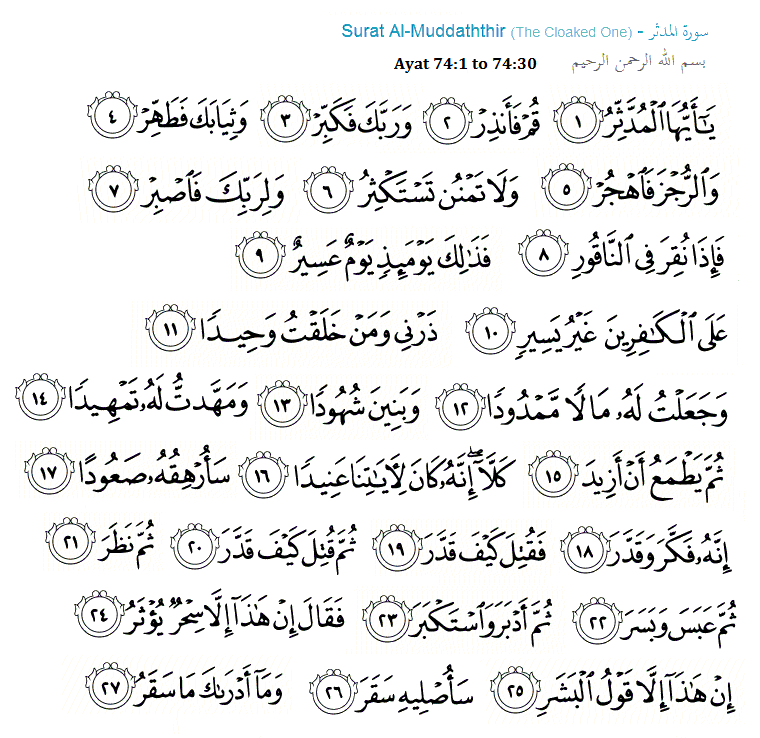 Surat Al-Muddaththir (The Cloaked One) - سورة المدثر
Ayat 74:1 to 74:30 بسم الله الرحمن الرحيم
يَـٰٓأَيُّهَا ٱلْمُدَّثِّرُ ١ قُمْ فَأَنذِرْ ٢ وَرَبَّكَ فَكَبِّرْ ٣ وَثِيَابَكَ فَطَهِّرْ ٤
وَٱلرُّجْزَ فَٱهْجُرْ ٥ وَلَا تَمْنُن تَسْتَكْثِرُ ٦ وَلِرَبِّكَ فَٱصْبِرْ ٧
فَإِذَا نُقِرَ فِى ٱلنَّاقُورِ ٨ فَذَٰلِكَ يَوْمَئِذٍ يَوْمٌ عَسِيرٌ ٩
عَلَى ٱلْكَـٰفِرِينَ غَيْرُ يَسِيرٍ ١٠ ذَرْنِى وَمَنْ خَلَقْتُ وَحِيدًا ١١
وَجَعَلْتُ لَهُۥ مَالًا مَّمْدُودًا ١٢ وَبَنِينَ شُهُودًا ١٣ وَمَهَّدتُّ لَهُۥ تَمْهِيدًا ١٤
ثُمَّ يَطْمَعُ أَنْ أَزِيدَ ١٥ كَلَّآ ۖ إِنَّهُۥ كَانَ لِـَٔايَـٰتِنَا عَنِيدًا ١٦ سَأُرْهِقُهُۥ صَعُودًا ١٧
إِنَّهُۥ فَكَّرَ وَقَدَّرَ ١٨ فَقُتِلَ كَيْفَ قَدَّرَ ١٩ ثُمَّ قُتِلَ كَيْفَ قَدَّرَ ٢٠ ثُمَّ نَظَرَ ٢١
ثُمَّ عَبَسَ وَبَسَرَ ٢٢ ثُمَّ أَدْبَرَ وَٱسْتَكْبَرَ ٢٣ فَقَالَ إِنْ هَـٰذَآ إِلَّا سِحْرٌ يُؤْثَرُ ٢٤
إِنْ هَـٰذَآ إِلَّا قَوْلُ ٱلْبَشَرِ ٢٥ سَأُصْلِيهِ سَقَرَ ٢٦ وَمَآ أَدْرَىٰكَ مَا سَقَرُ ٢٧